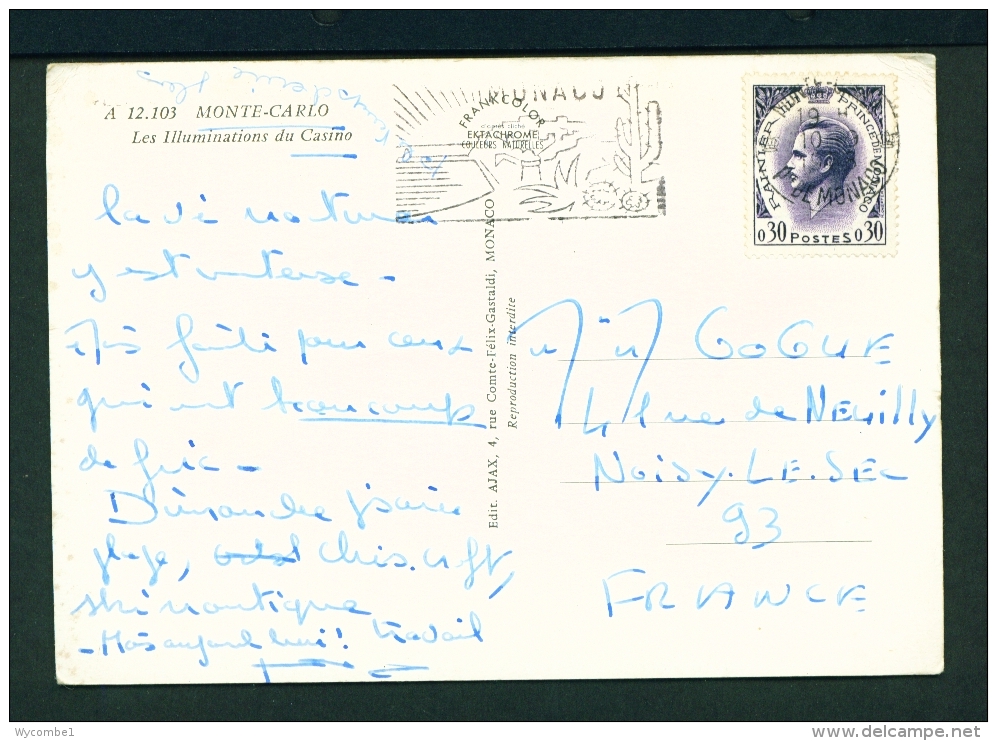 A 12.103 MONTE-CARLO
Les Illuminations du Casino
MONACO
FRANKCOLOR
d'après cliché
EKTACHROME
COULEURS NATURELLES
RAINIER III PRINCE DE MONACO
0.30 POSTES 0.30
19
10
Pté DE MONACO
la vie
y est
faite pour ceux
qui ont beaucoup
de fric -
Dimanche soirée
plage, chis craft,
ski nautique
- Mais aujourd'hui! travail
Edit. AJAX, 4, rue Comte-Félix-Gastaldi, MONACO
Reproduction interdite
GOGUE
4 rue de NEUILLY
NOISY.LE.SEC
93
FRANCE
Wycombe1
www.delcampe.net